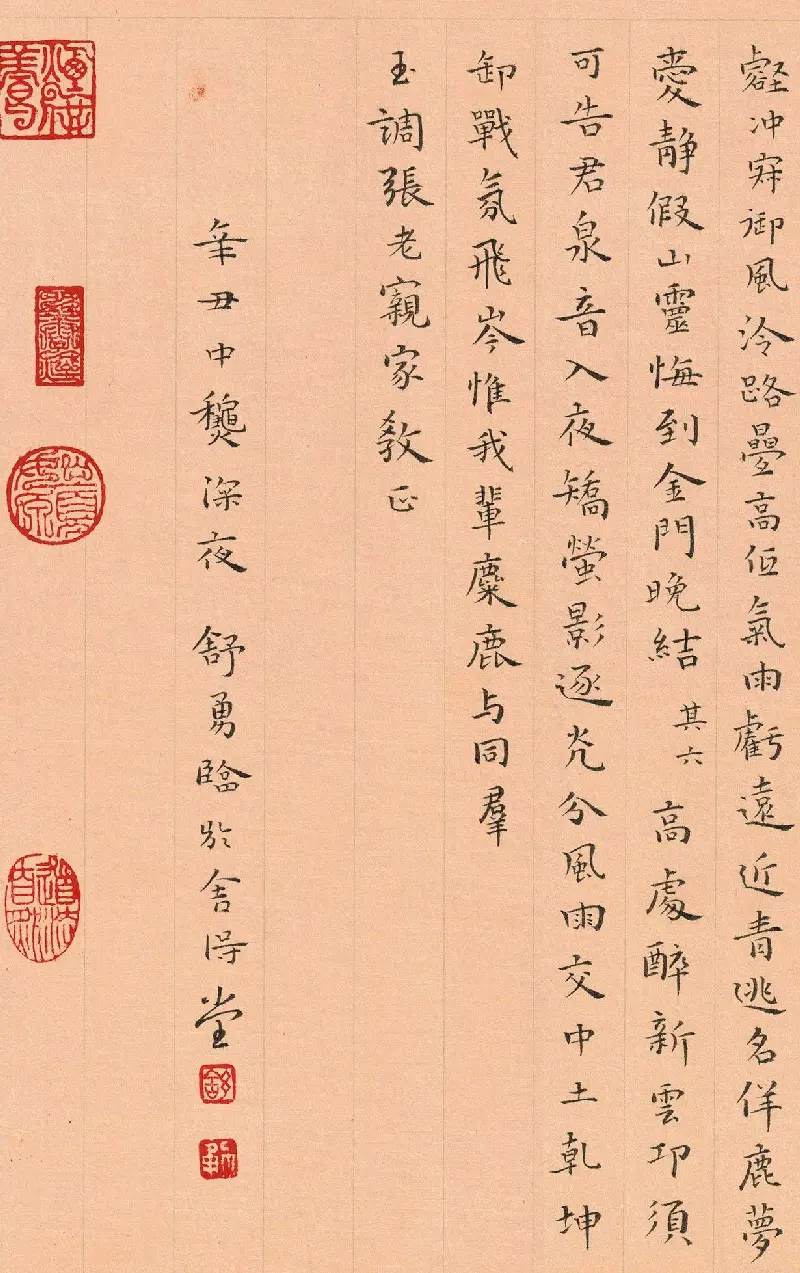 壑冲寐御風泠路疊高低氣雨虧遠近青逃名佯鹿夢
愛静假山靈悔到金門晚結 其六 高處醉新雲邛須
可告君泉音入夜矯螢影逐光分風雨交中土乹坤
卸戰氛飛岑惟我輩麋鹿与同羣
玉調張老親家教正
辛丑中龝深夜 舒勇臨於舍得堂